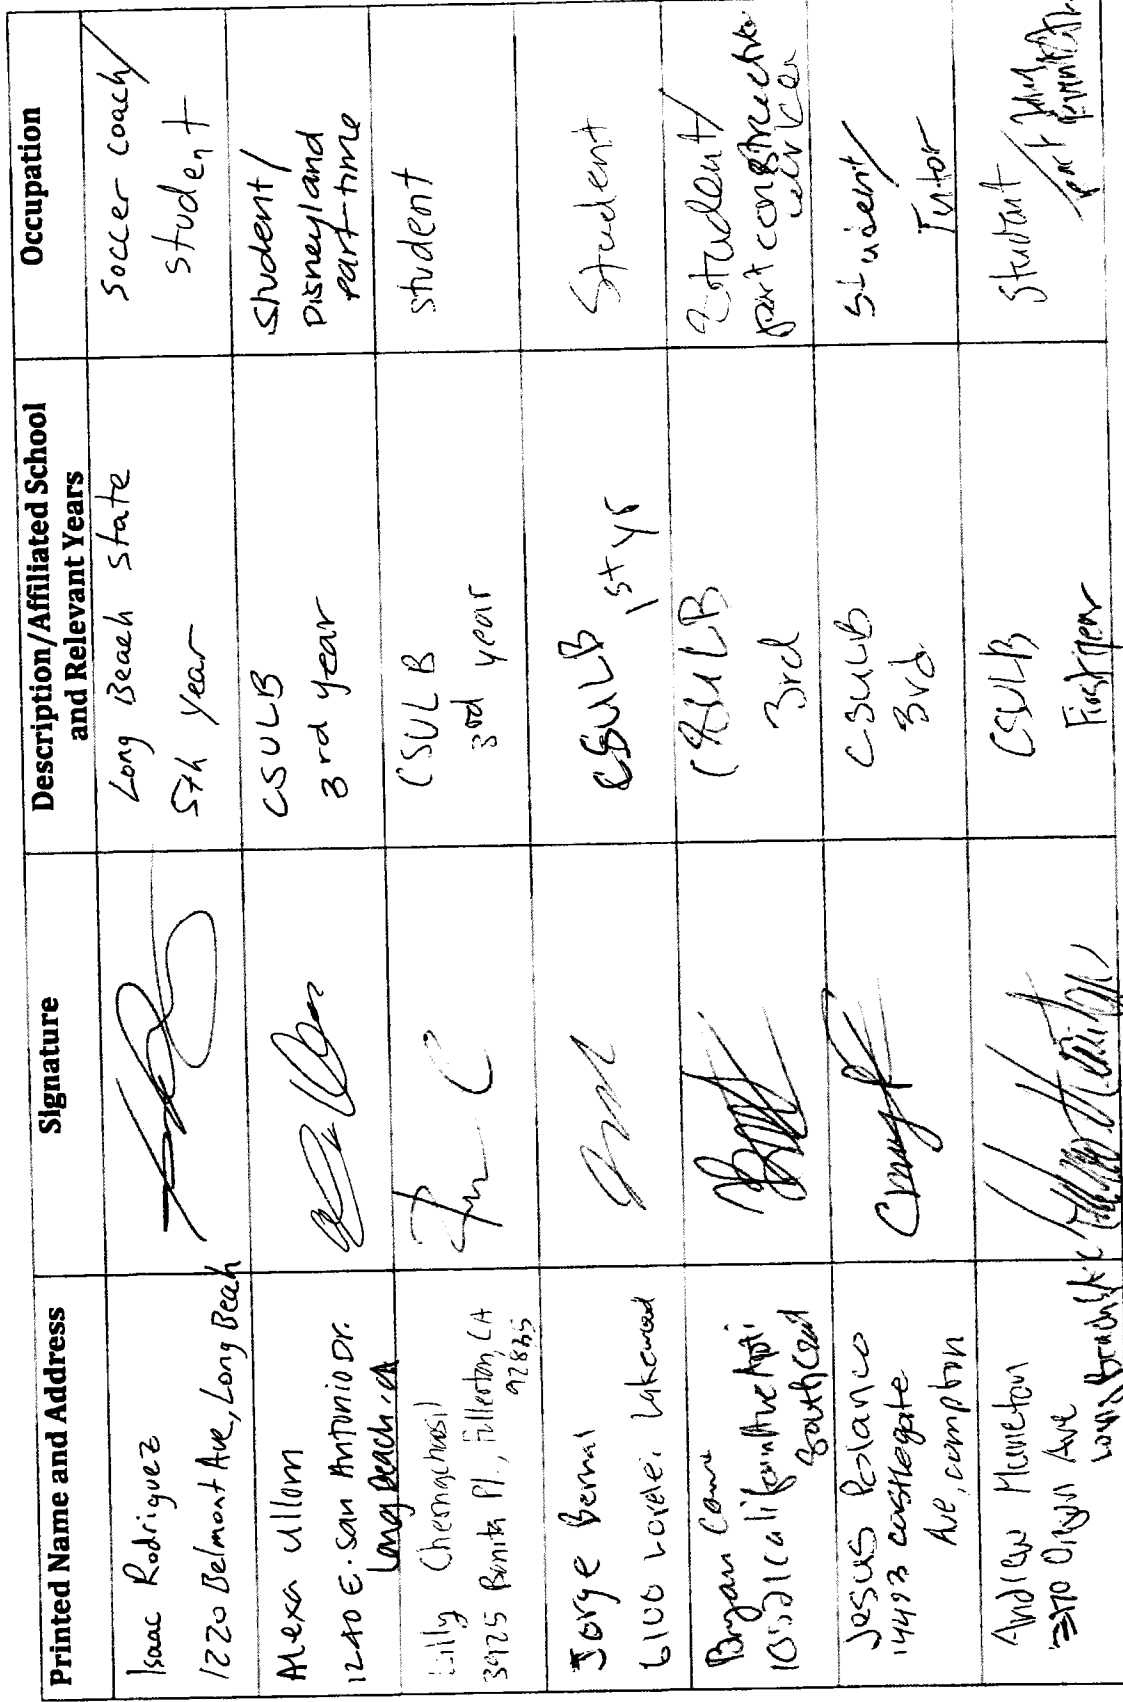 Printed Name and Address
Signature
Description/Affiliated School
and Relevant Years
Occupation
Isaac Rodriguez
1220 Belmont Ave, Long Beach
Long Beach State
5th year
Soccer coach/
student
Alexa Ullom
1240 E. San Antonio Dr.
Long Beach, CA
CSULB
3rd year
Student/
Disneyland
part-time
Lilly
3925 Bonita Pl., Fullerton, CA
92835
CSULB
3rd year
student
Jorge Bernal
6100 Lorelei Lakewood
CSULB
1st yr
Student
Bryan
California Ave Apt
South
CSULB
3rd
Student/
part construction
worker
Jesus Polanco
14493 castlegate
Ave, compton
CSULB
3rd
Student/
Tutor
Andrew
Ave
Long Beach
CSULB
First year
Student
/part